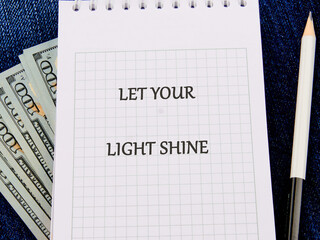 LET YOUR
LIGHT SHINE